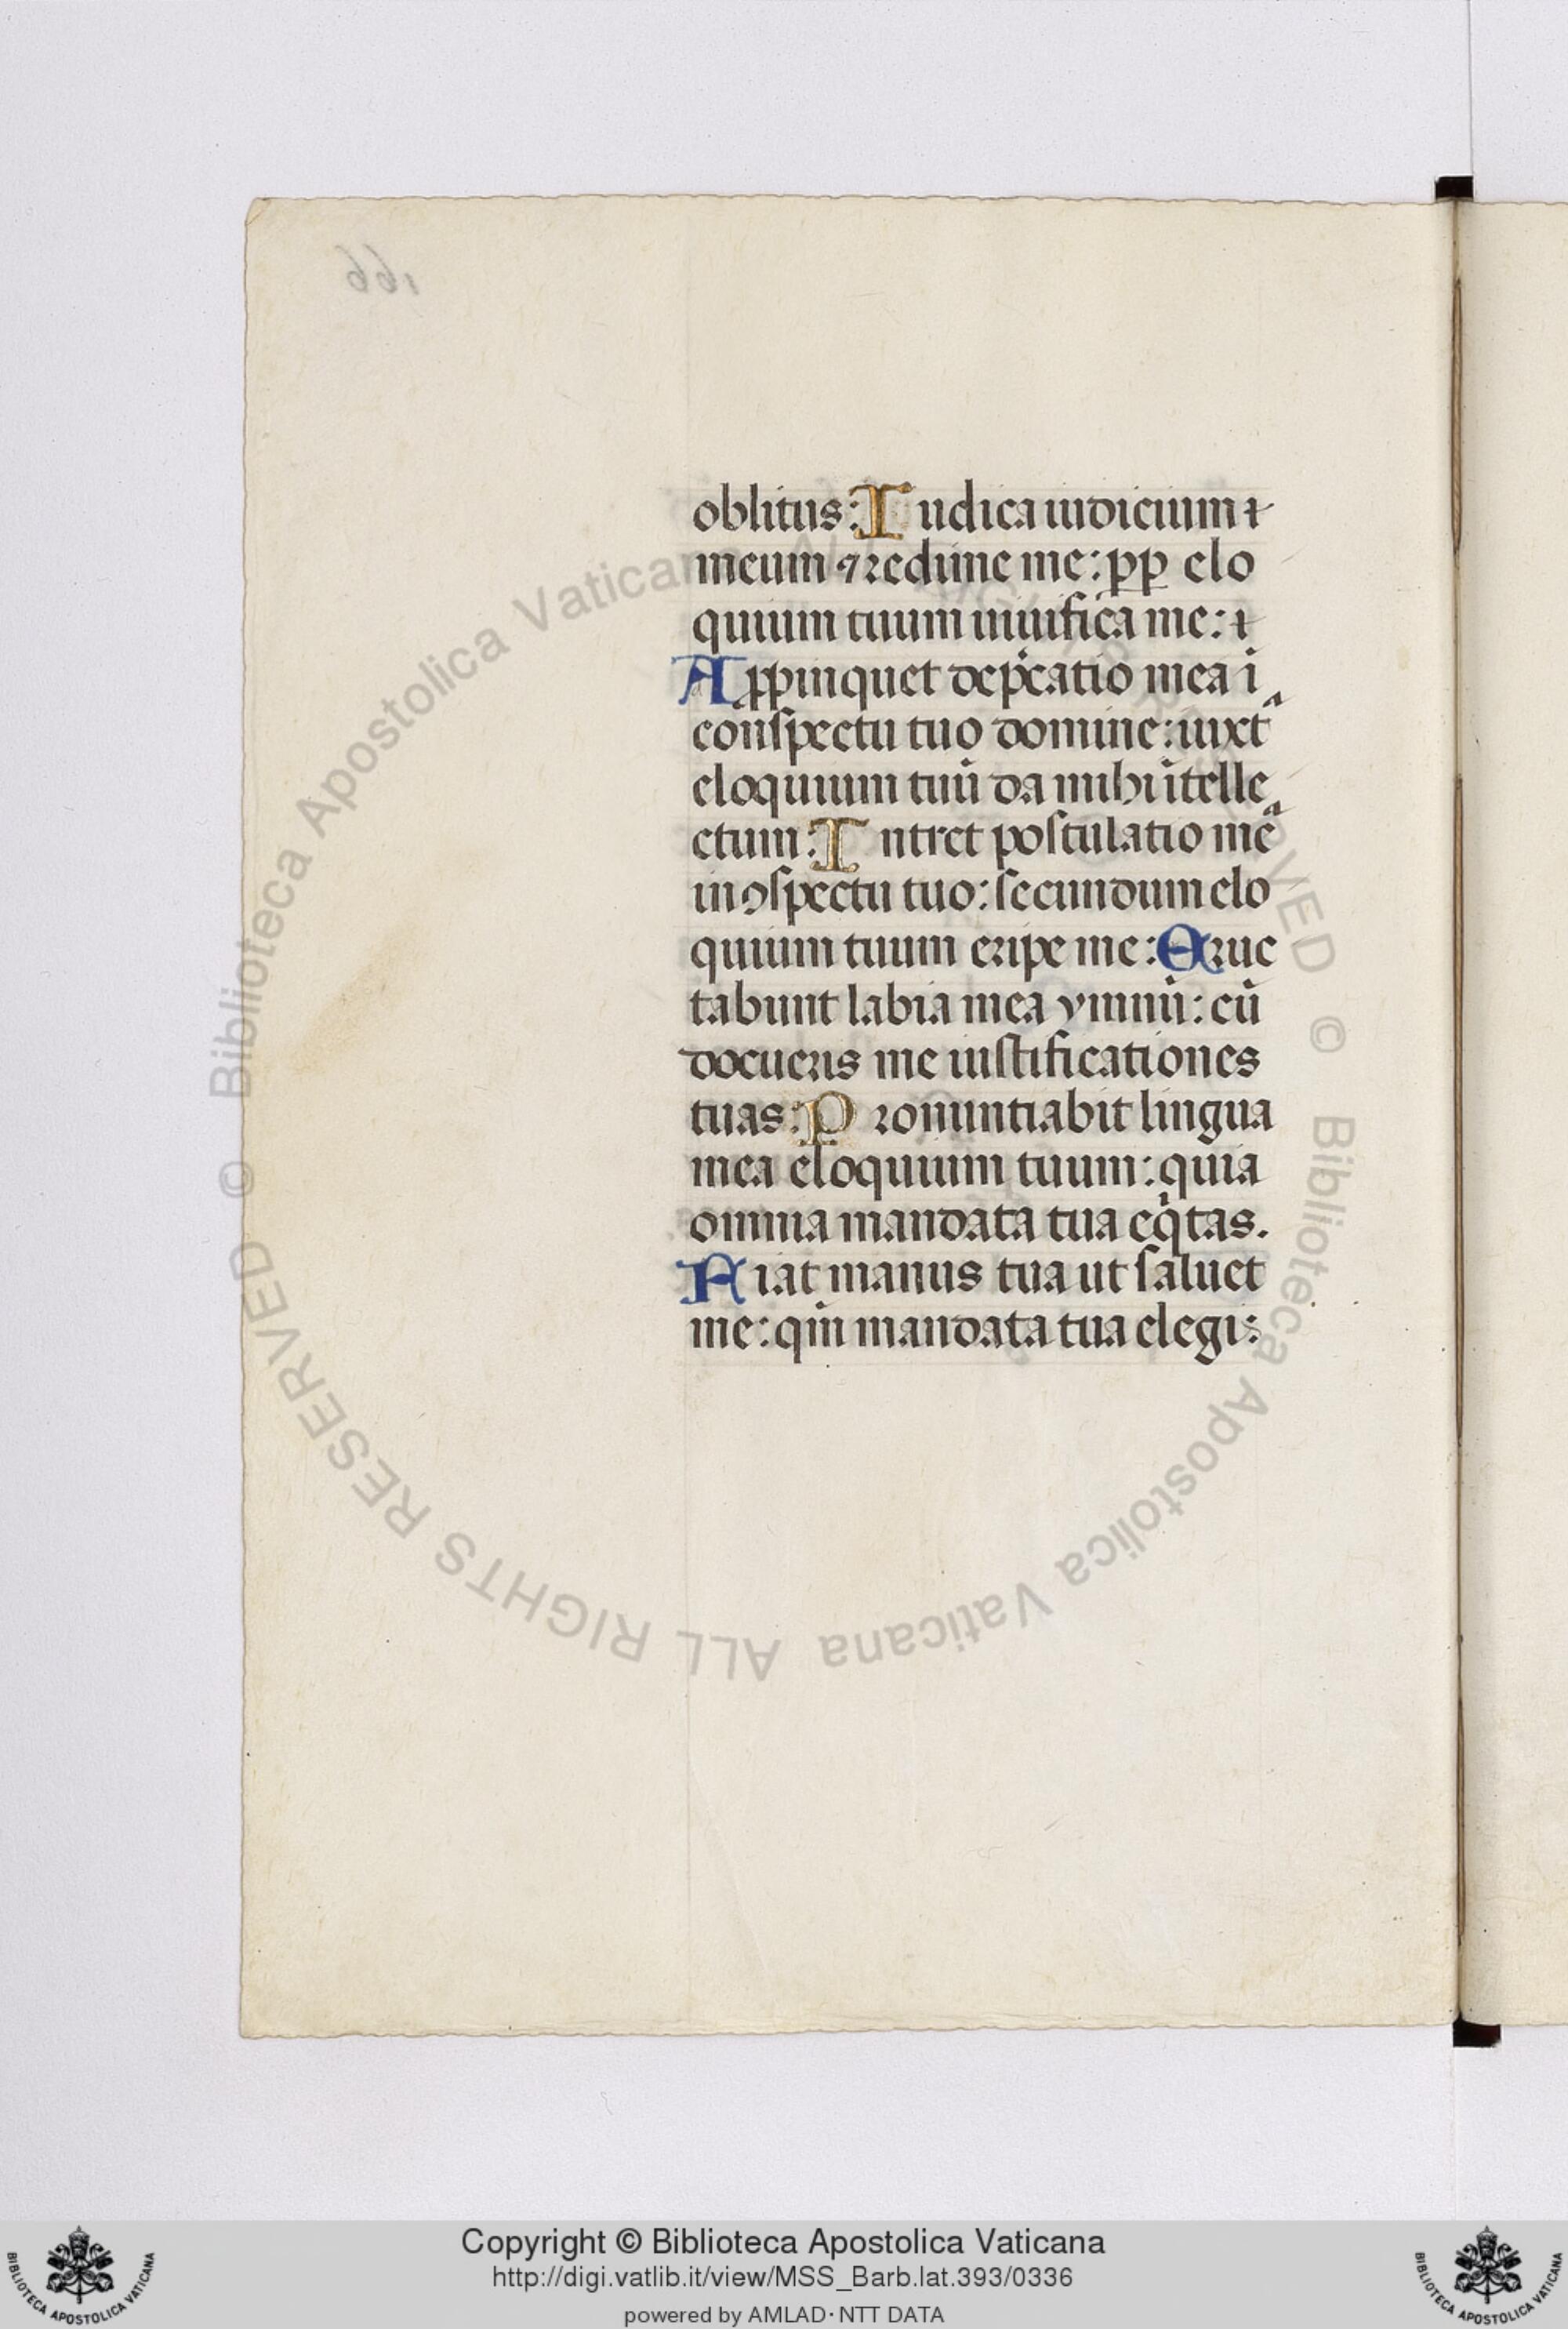 166
oblitus: Iudica iudicium
meum ⁊ redime me: ꝓp̱ elo
quium tuum uiuifica me:
Aꝓpinquet dep̄catio mea i
conspectu tuo domine: iuxtᵃ
eloquium tuū da mihi ītelle
ctum: Intret postulatio meᵃ
in ꝯspectu tuo: secundum elo
quium tuum eripe me: Eruc
tabunt labia mea ymnū: cū
docueris me iustificationes
tuas: Pronuntiabit lingua
mea eloquium tuum: quia
omnia mandata tua eqͥtas.
Fiat manus tua ut saluet
me: qm̄ mandata tua elegi:
© Biblioteca Apostolica Vaticana ALL RIGHTS RESERVED © Biblioteca Apostolica Vaticana ALL RIGHTS RESERVED
Copyright © Biblioteca Apostolica Vaticana
http://digi.vatlib.it/view/MSS_Barb.lat.393/0336
powered by AMLAD · NTT DATA
BIBLIOTECA APOSTOLICA VATICANA
BIBLIOTECA APOSTOLICA VATICANA